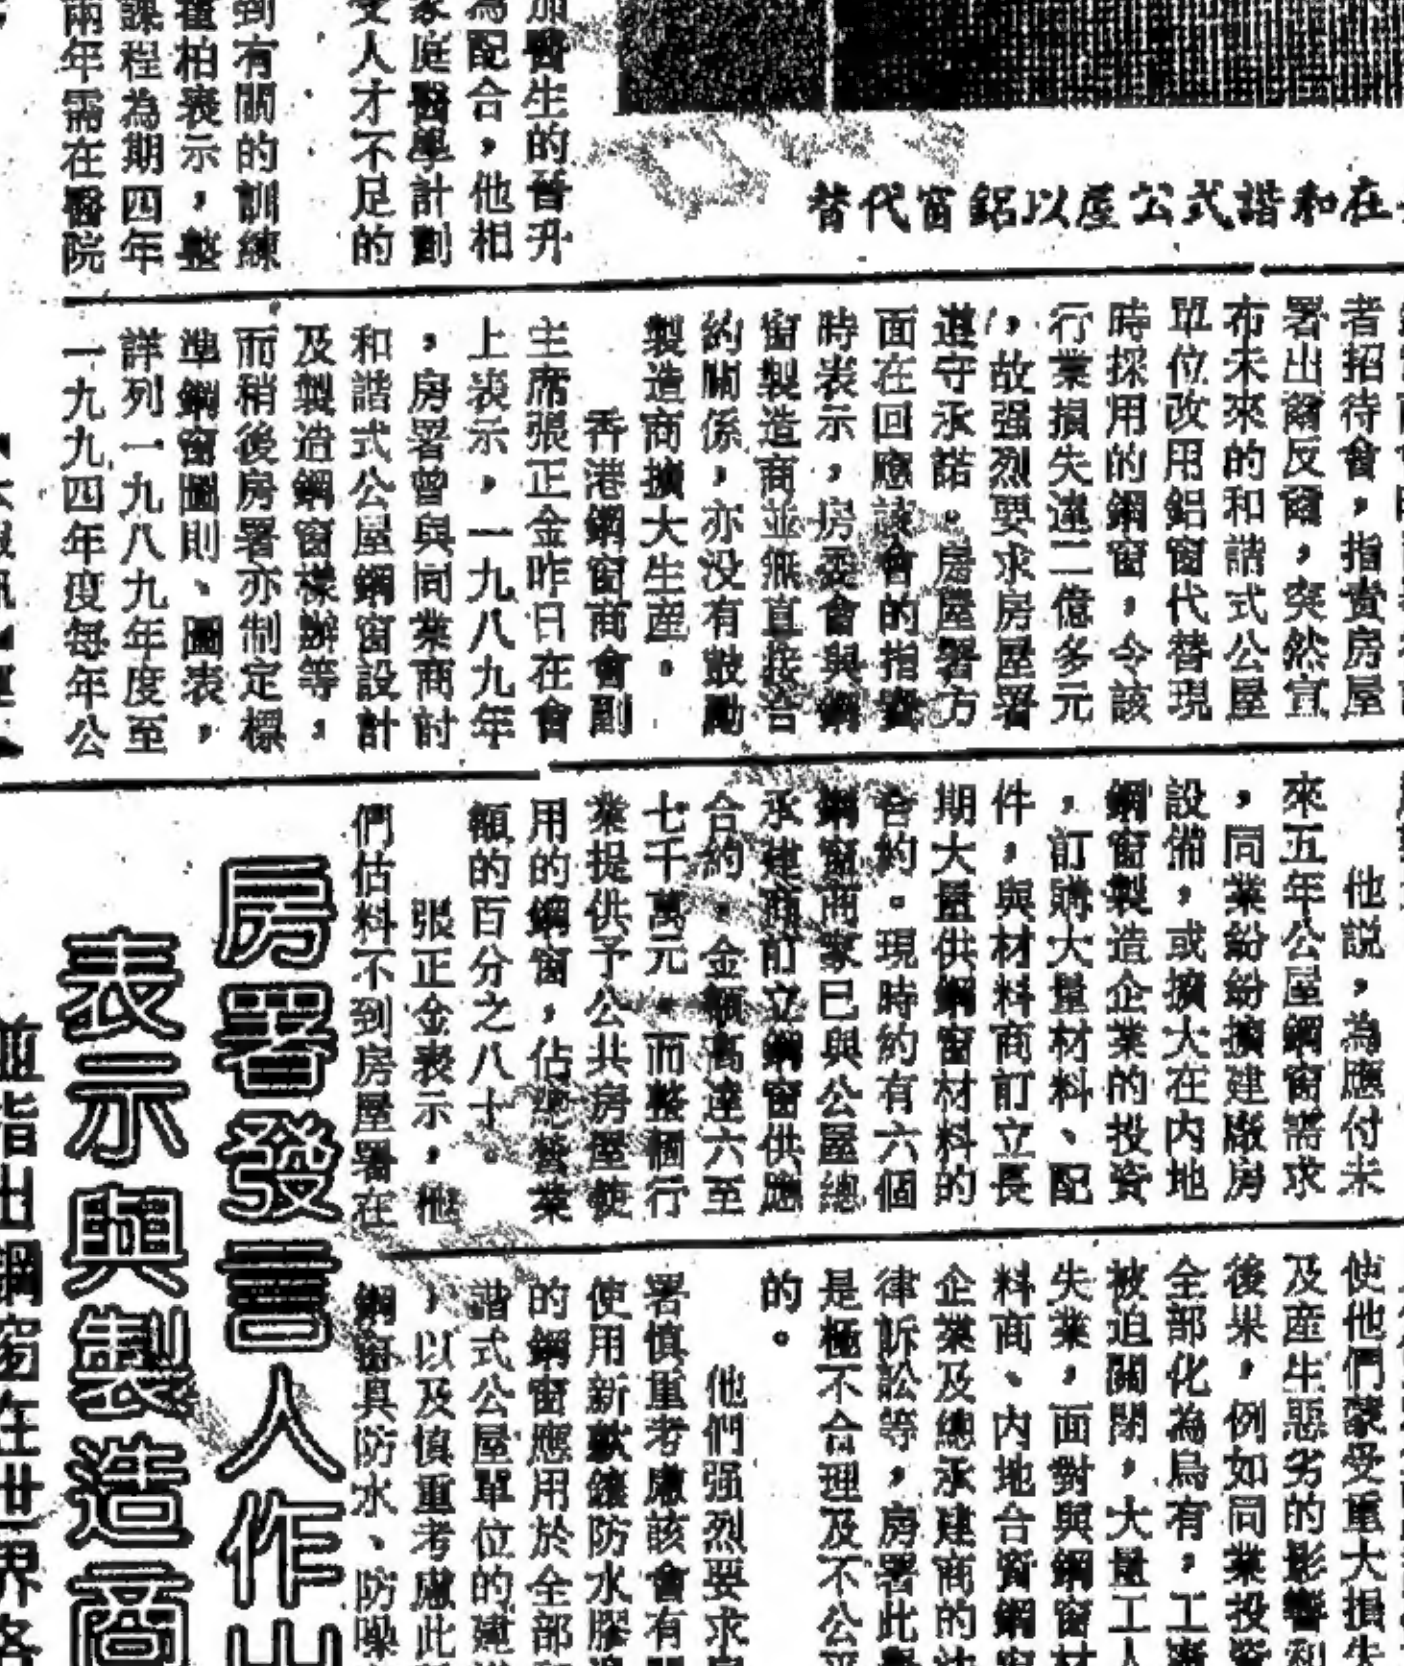 在和諧式公屋以鋁窗代替
加醫生的晉升
為配合，他相
家庭醫學計劃
受人才不足的
到有關的訓練
董柏表示，整
課程為期四年
兩年需在醫院
者招待會，指責房屋
署出爾反爾，突然宣
布未來的和諧式公屋
單位改用鋁窗代替現
時採用的鋼窗，令該
行業損失達二億多元
，故强烈要求房屋署
遵守承諾。房屋署方
面在回應該會的指責
時表示，房委會與鋼
窗製造商並無直接合
約關係，亦没有鼓勵
製造商擴大生産。
香港鋼窗商會副
主席張正金昨日在會
上表示，一九八九年
，房署曾與同業商討
和諧式公屋鋼窗設計
及製造鋼窗樣辦等，
而稍後房署亦制定標
準鋼窗圖則、圖表，
詳列一九八九年度至
一九九四年度每年公
他説，為應付未
來五年公屋鋼窗需求
，同業紛紛擴建廠房
設備，或擴大在内地
鋼窗製造企業的投資
，訂購大量材料、配
件，與材料商訂立長
期大量供鋼窗材料的
合約。現時約有六個
鋼窗商家已與公屋總
承建商訂立鋼窗供應
合約，金額高達六至
七千萬元，而整個行
業提供予公共房屋使
用的鋼窗，佔總營業
額的百分之八十。
張正金表示，他
們估料不到房屋署在
使他們蒙受重大損失
及産生惡劣的影響和
後果，例如同業投資
全部化為烏有，工廠
被迫關閉，大量工人
失業，面對與鋼窗材
料商、内地合資鋼窗
企業及總承建商的法
律訴訟等，房署此舉
是極不合理及不公平
的。
他們强烈要求房
署慎重考慮該會有關
使用新款鑲防水膠邊
的鋼窗應用於全部和
諧式公屋單位的建議
，以及慎重考慮此
鋼窗具防水、防噪
房署發言人作出
表示與製造商
並指出鋼窗在世界各